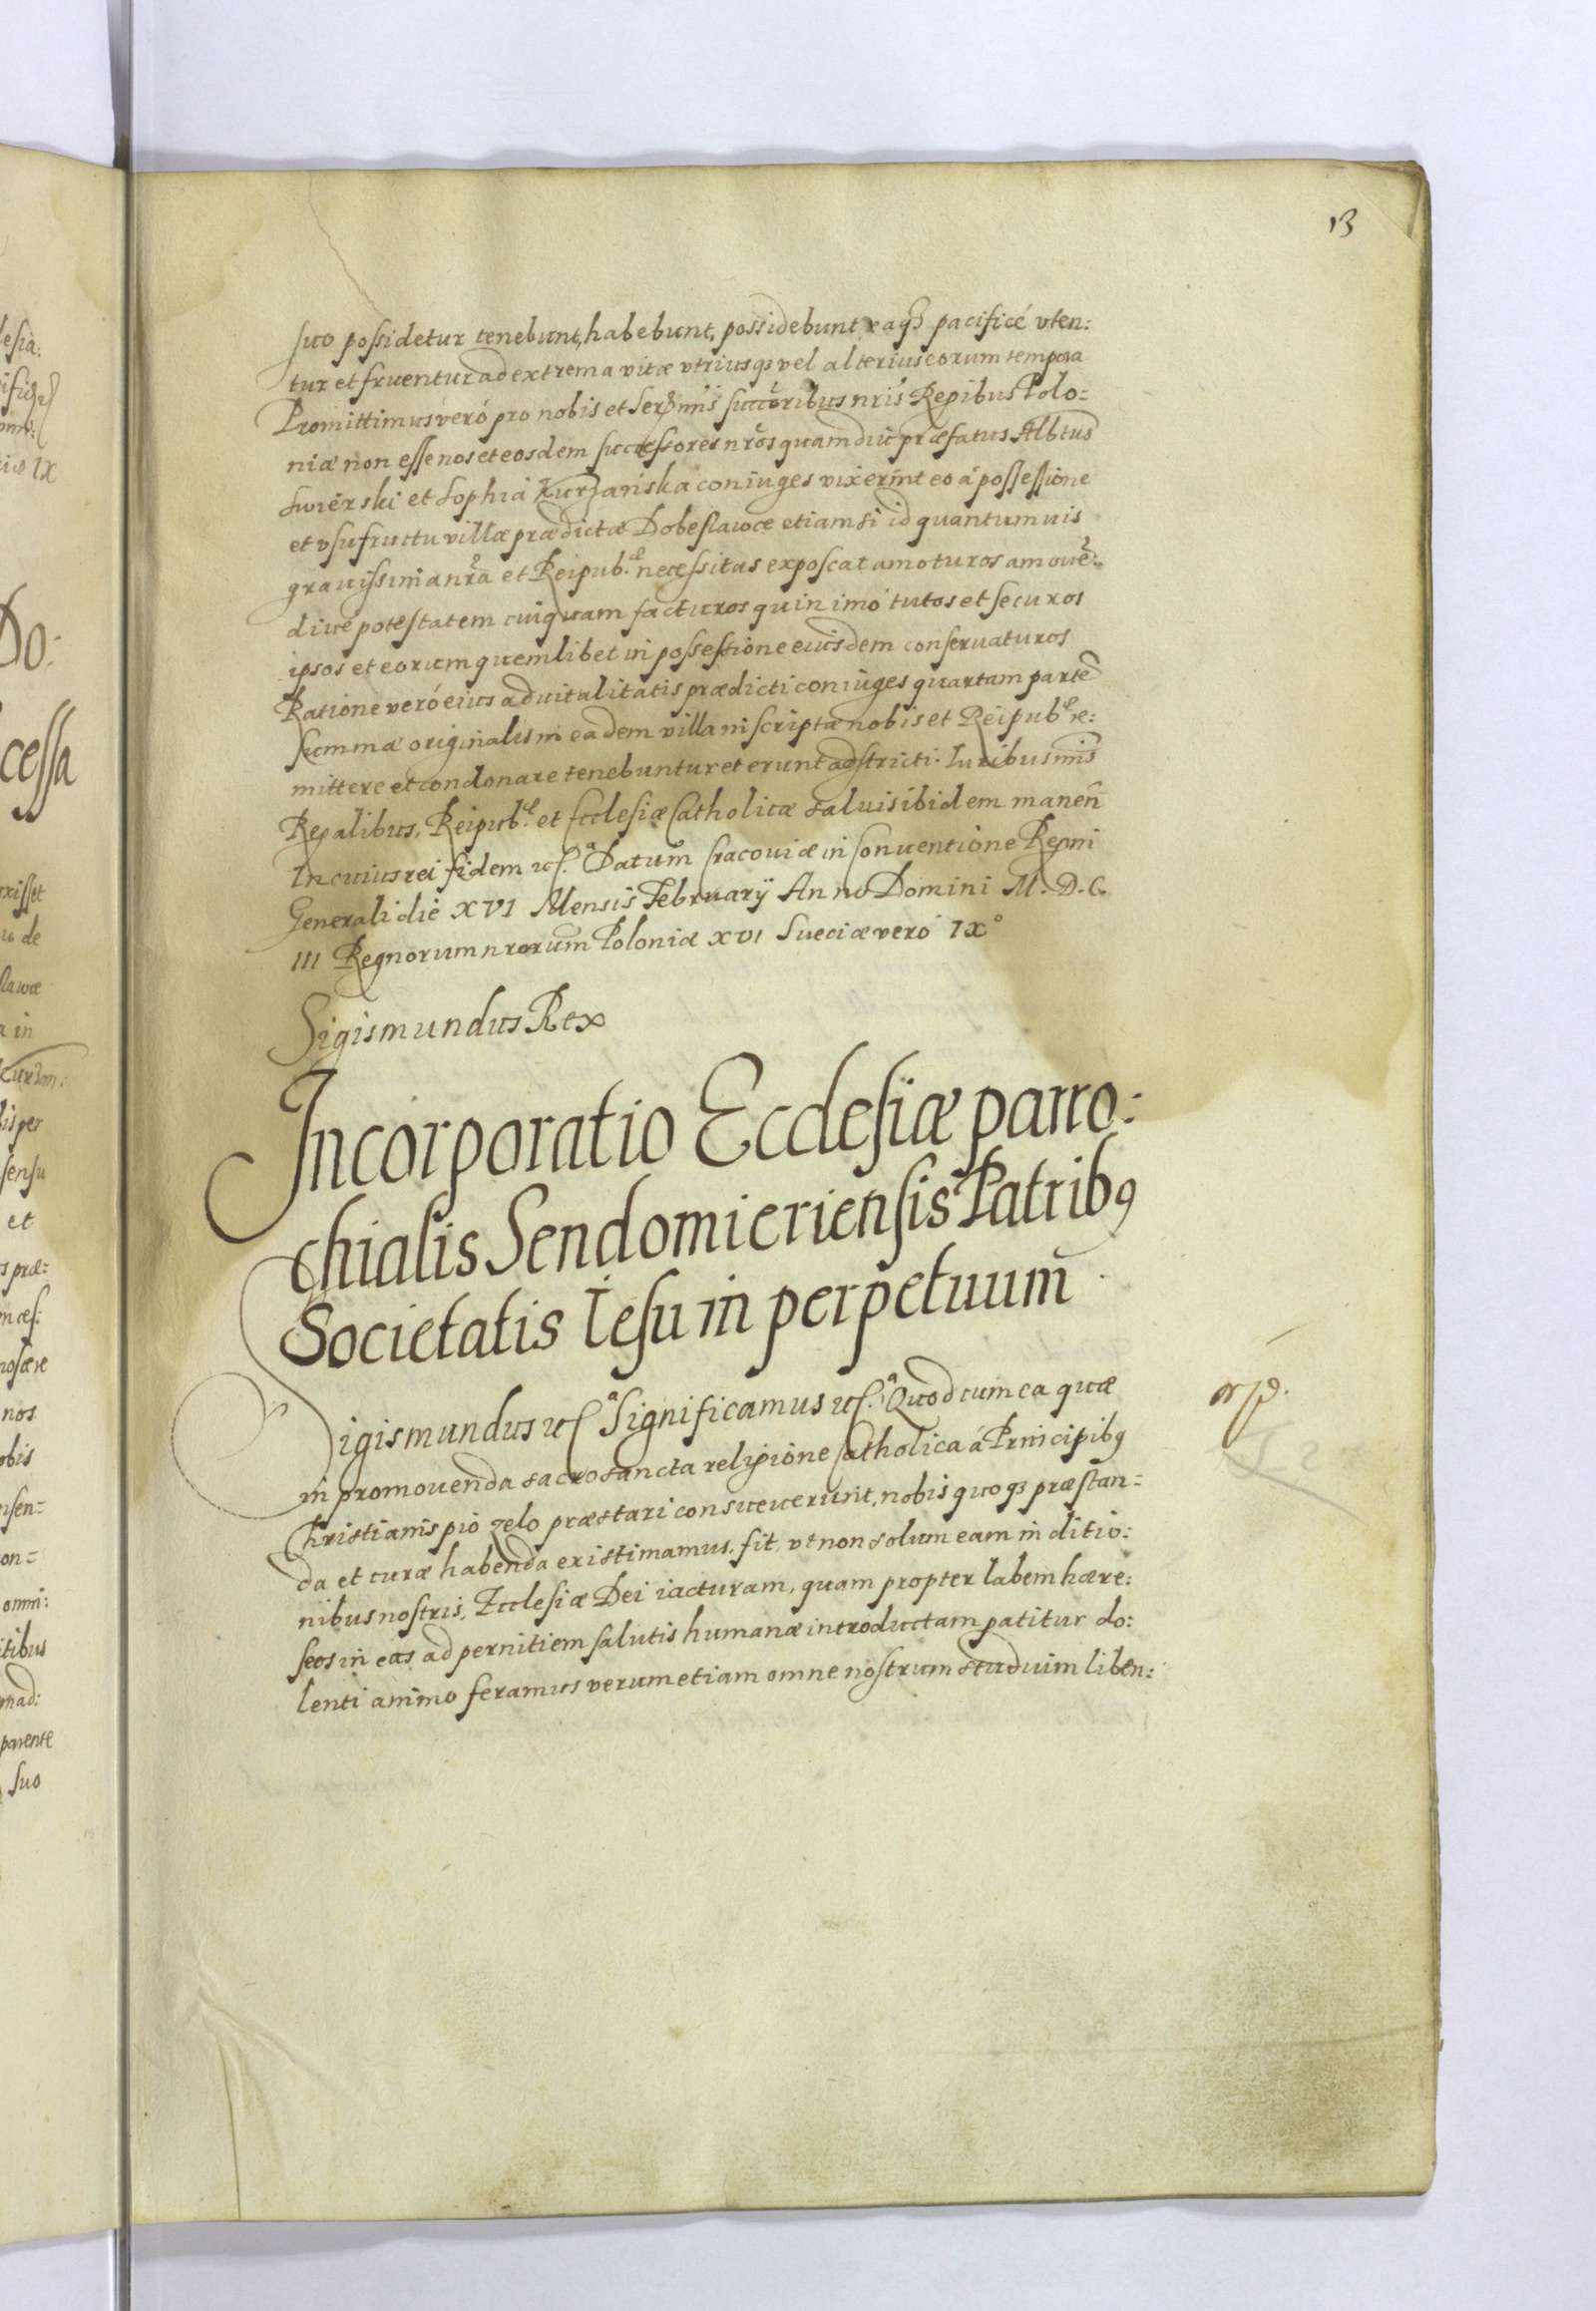 13
suo possidetur tenebunt, habebunt, possidebunt eaqз pacificé vten:
tur et fruentur ad extrema vitæ vtriusqз vel alterius eorum tempora
Promittimus veró pro nobis et Serз̃mis succ̃oribus nris̃ Regibus Polo:
niæ non esse nos et eosdem successores nr̃os quamdiu præfatus Albtus̃
Swierski et Sophia Kurzańska coniuges vixerint eo á possessione
et vsufructu villæ prædictæ Dobeslawce etiamsi id quantumuis
grauissima nr̃a et Reipub.ͤ necessitas exposcat amoturos amouẽ:
diue potestatem cuiquam facturos quin imó tutos et securos
ipsos et eorum quemlibet in possessione eiusdem conseruaturos
Ratione veró eius aduitalitatis prædicti coniuges quartam partẽ
summæ originalis in eadem villa inscriptæ nobis et Reipubͤ re:
mittere et condonare tenebuntur et erunt adstricti. Iuribus nr̃is
Regalibus, Reipub.ͤ et Ecclesiæ Catholicæ saluis ibidem maneñ
In cuius rei fidem ꝛc.ͣ Datum̃ Cracouiæ in Conuentione Regni
Generali die XVI Mensis February Anno Domini M. D. C.
III Regnorum nrorum̃ Poloniæ XVI Sueciæ veró IX°
Sigismundus Rex
Incorporatio Ecclesiæ parro:
chialis Sendomieriensis Patribꝰ
Societatis Iesu in perpetuum̃
Sigismundus ꝛc.ͣ Significamus ꝛc.ͣ Quod cum ea quæ
in promouenda sacrosancta religione Catholica á Principibꝰ
Christianis pio zelo præstari consueuerunt, nobis quoqз præstan=
da et curæ habenda existimamus. fit, vt non solum eam in ditio:
nibus nostris, Ecclesiæ Dei iacturam, quam propter labem hære:
seos in eas ad pernitiem salutis humanæ introductam patitur do:
lenti animo feramus verum etiam omne nostrum studium liben: